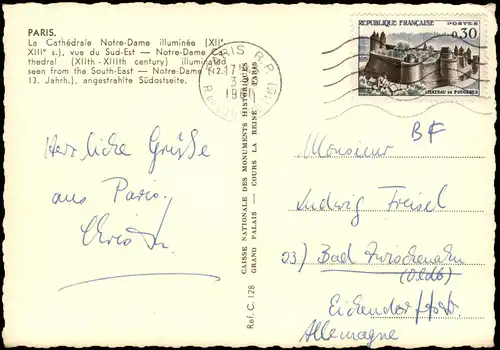 PARIS.
La Cathédrale Notre-Dame illuminée (XIIe-
XIIIe s.), vue du Sud-Est — Notre-Dame Ca-
thedral (XIIth-XIIIth century) illuminated
seen from the South-East — Notre-Dame (12.-
13. Jahrh.), angestrahlte Südostseite.
PARIS R.P.
17
3
196
RÉPUBLIQUE FRANÇAISE
POSTES
0,30
CHÂTEAU DE FOUGÈRES
Herzliche Grüße
aus Paris.
CAISSE NATIONALE DES MONUMENTS HISTORIQUES
GRAND PALAIS — COURS LA REINE — PARIS
Ref. C. 128
BF
Monsieur
Ludwig Freisel
23) Bad Zwischenahn
(Oldb)
Eichendorffstr.
Allemagne